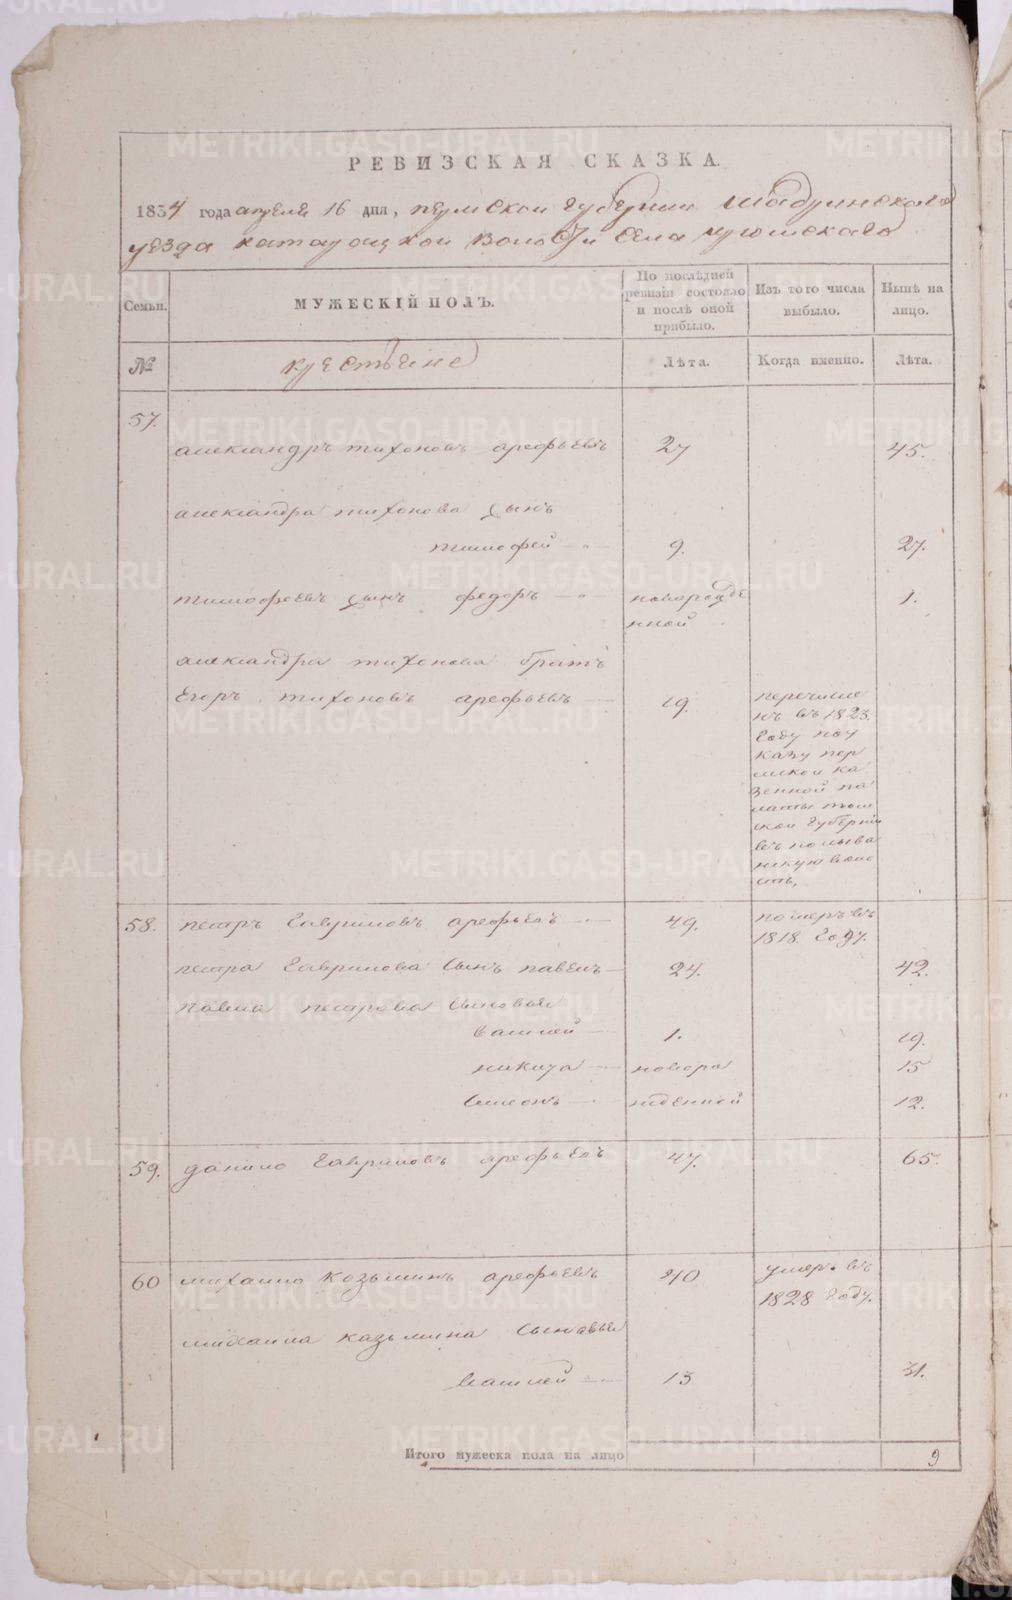 РЕВИЗСКАЯ СКАЗКА.
1834 года апреля 16 дня, пермской губернии Шадринскаго
уезда катайской волости села
Семьи.
МУЖЕСКІЙ ПОЛЪ.
По послѣдней ревизіи состояло и послѣ оной прибыло.
Изъ того числа выбыло.
Нынѣ на лицо.
№
крестьяне
Лѣта.
Когда именно.
Лѣта.
57.
александръ тихоновъ арефьевъ 27 45.
александра тихонова сынъ
тимофей 9. 27.
тимофеевъ сынъ федоръ новорожде 1.
нной
александра тихонова братъ
Егоръ тихоновъ арефьевъ 19. перечисле
нъ въ 1823.
году поу
казу пер
мской ка
зенной па
латы том
ской губерніи
въ колыва
нскую воло
сть,
58. петръ гавриловъ арефьевъ 49. померъ въ
1818. году.
петра гаврилова сынъ павелъ 24. 42.
павла петрова сыновья
василей 1. 19.
никита новоро 15
симеонъ жденной 12.
59. данило гавриловъ арефьевъ 47. 65.
60 михаило козьминъ арефьевъ 40 умеръ въ
1828 году.
михаила казьмина сыновья
василей 13 31.
Итого мужеска пола на лицо 9
METRIKI.GASO-URAL.RU